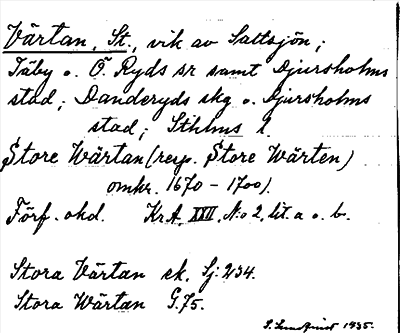 Värtan, St., vik av Saltsjön;
Täby o. Ö. Ryds sr samt Djursholms
stad; Danderyds skg o. Djursholms
stad; Sthlms l.
Store Wärtan (resp. Store Wärten)
omkr. 1670-1700).
Förf. okd. Kr.A. XXII, No 2, lit. a o. b.
Stora Värtan ek. Sj. 234.
Stora Wärtan G. 75.
S. Lundqvist 1935.